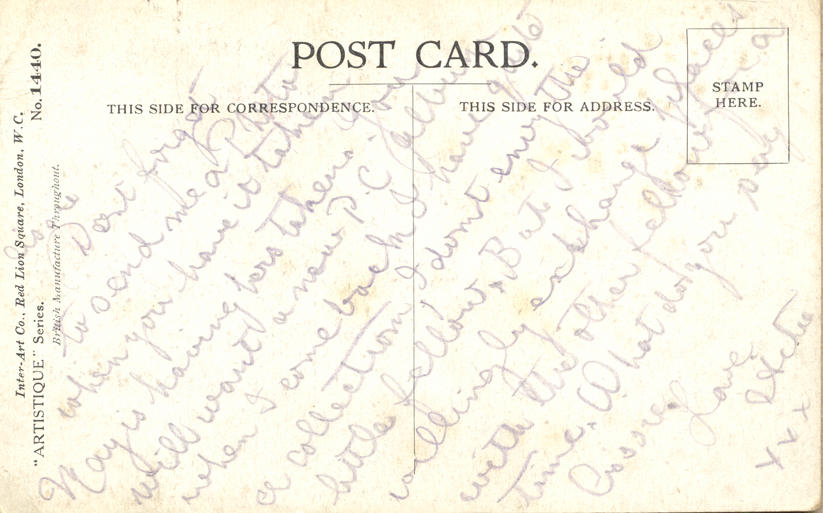 POST CARD.
THIS SIDE FOR CORRESPONDENCE.
THIS SIDE FOR ADDRESS.
STAMP
HERE.
Inter-Art Co., Red Lion Square, London, W.C.
"ARTISTIQUE" Series.
British Manufacture Throughout.
No. 1440.
Dont forget
to send me a Photo
when you have it taken
May is having hers taken. You
will want a new P.C. album
when I come back I have quite
a collection I dont envy the
little fellow. But I would
willingly exchange places
with the other fellow for a
time. What do you say
Love
xxx